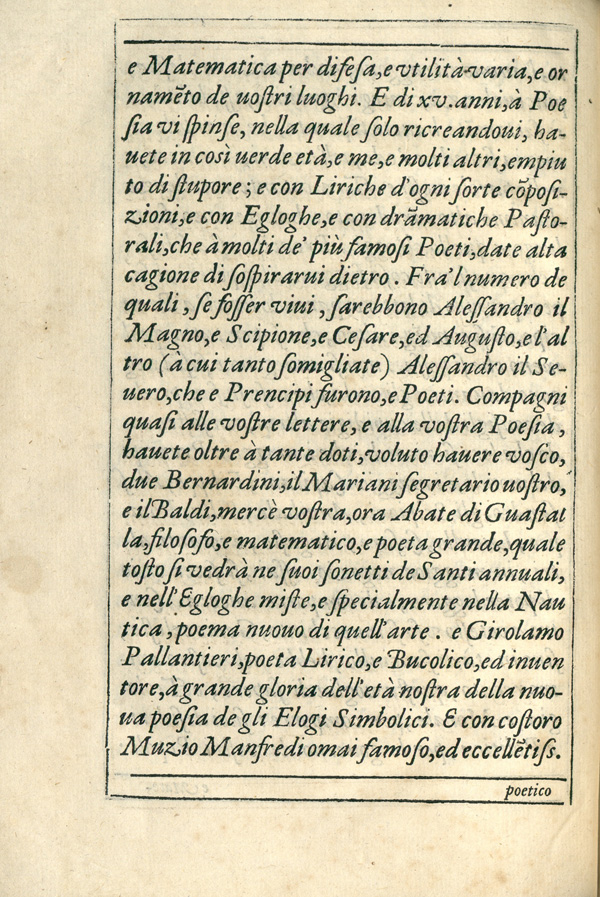 e Matematica per difeſa, e vtilità varia, e or
namēto de uostri luoghi. E di xv. anni, à Poe
ſia vi ſpinse, nella quale ſolo ricreandoui, ha-
uete in così uerde età, e me, e molti altri, empiu
to di ſtupore; e con Liriche d'ogni ſorte cōposi-
zioni, e con Egloghe, e con drāmatiche Paſto-
rali, che à molti de' più famoſi Poeti, date alta
cagione di ſoſpirarui dietro. Fra'l numero de
quali, ſe foſſer viui, ſarebbono Aleſſandro il
Magno, e Scipione, e Ceſare, ed Auguſto, e l'al
tro (à cui tanto ſomigliate) Aleſſandro il Se-
uero, che e Prencipi furono, e Poeti. Compagni
quaſi alle voſtre lettere, e alla voſtra Poeſia,
hauete oltre à tante doti, voluto hauere voſco,
due Bernardini, il Mariani ſegretario uoſtro,
e il Baldi, mercè voſtra, ora Abate di Guaſtal
la, filoſofo, e matematico, e poeta grande, quale
toſto ſi vedrà ne ſuoi ſonetti de Santi annuali,
e nell'Egloghe miſte, e ſpecialmente nella Nau
tica, poema nuouo di quell'arte. e Girolamo
Pallantieri, poeta Lirico, e Bucolico, ed inuen
tore, à grande gloria dell'età noſtra della nuo-
ua poeſia de gli Elogi Simbolici. E con coſtoro
Muzio Manfredi omai famoſo, ed eccellētiſs.
poetico